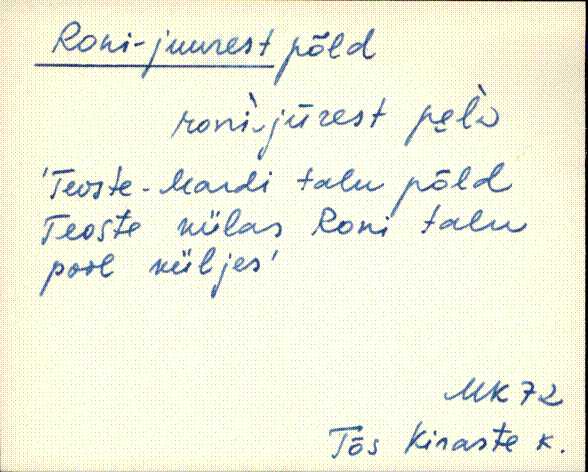 Roni-juurest põld
roniì-jūrest pȩlᴅ̀
'Teoste-Mardi talu põld
Teoste külas Roni talu
pool küljes'
MK 72
Tõs Kiraste k.